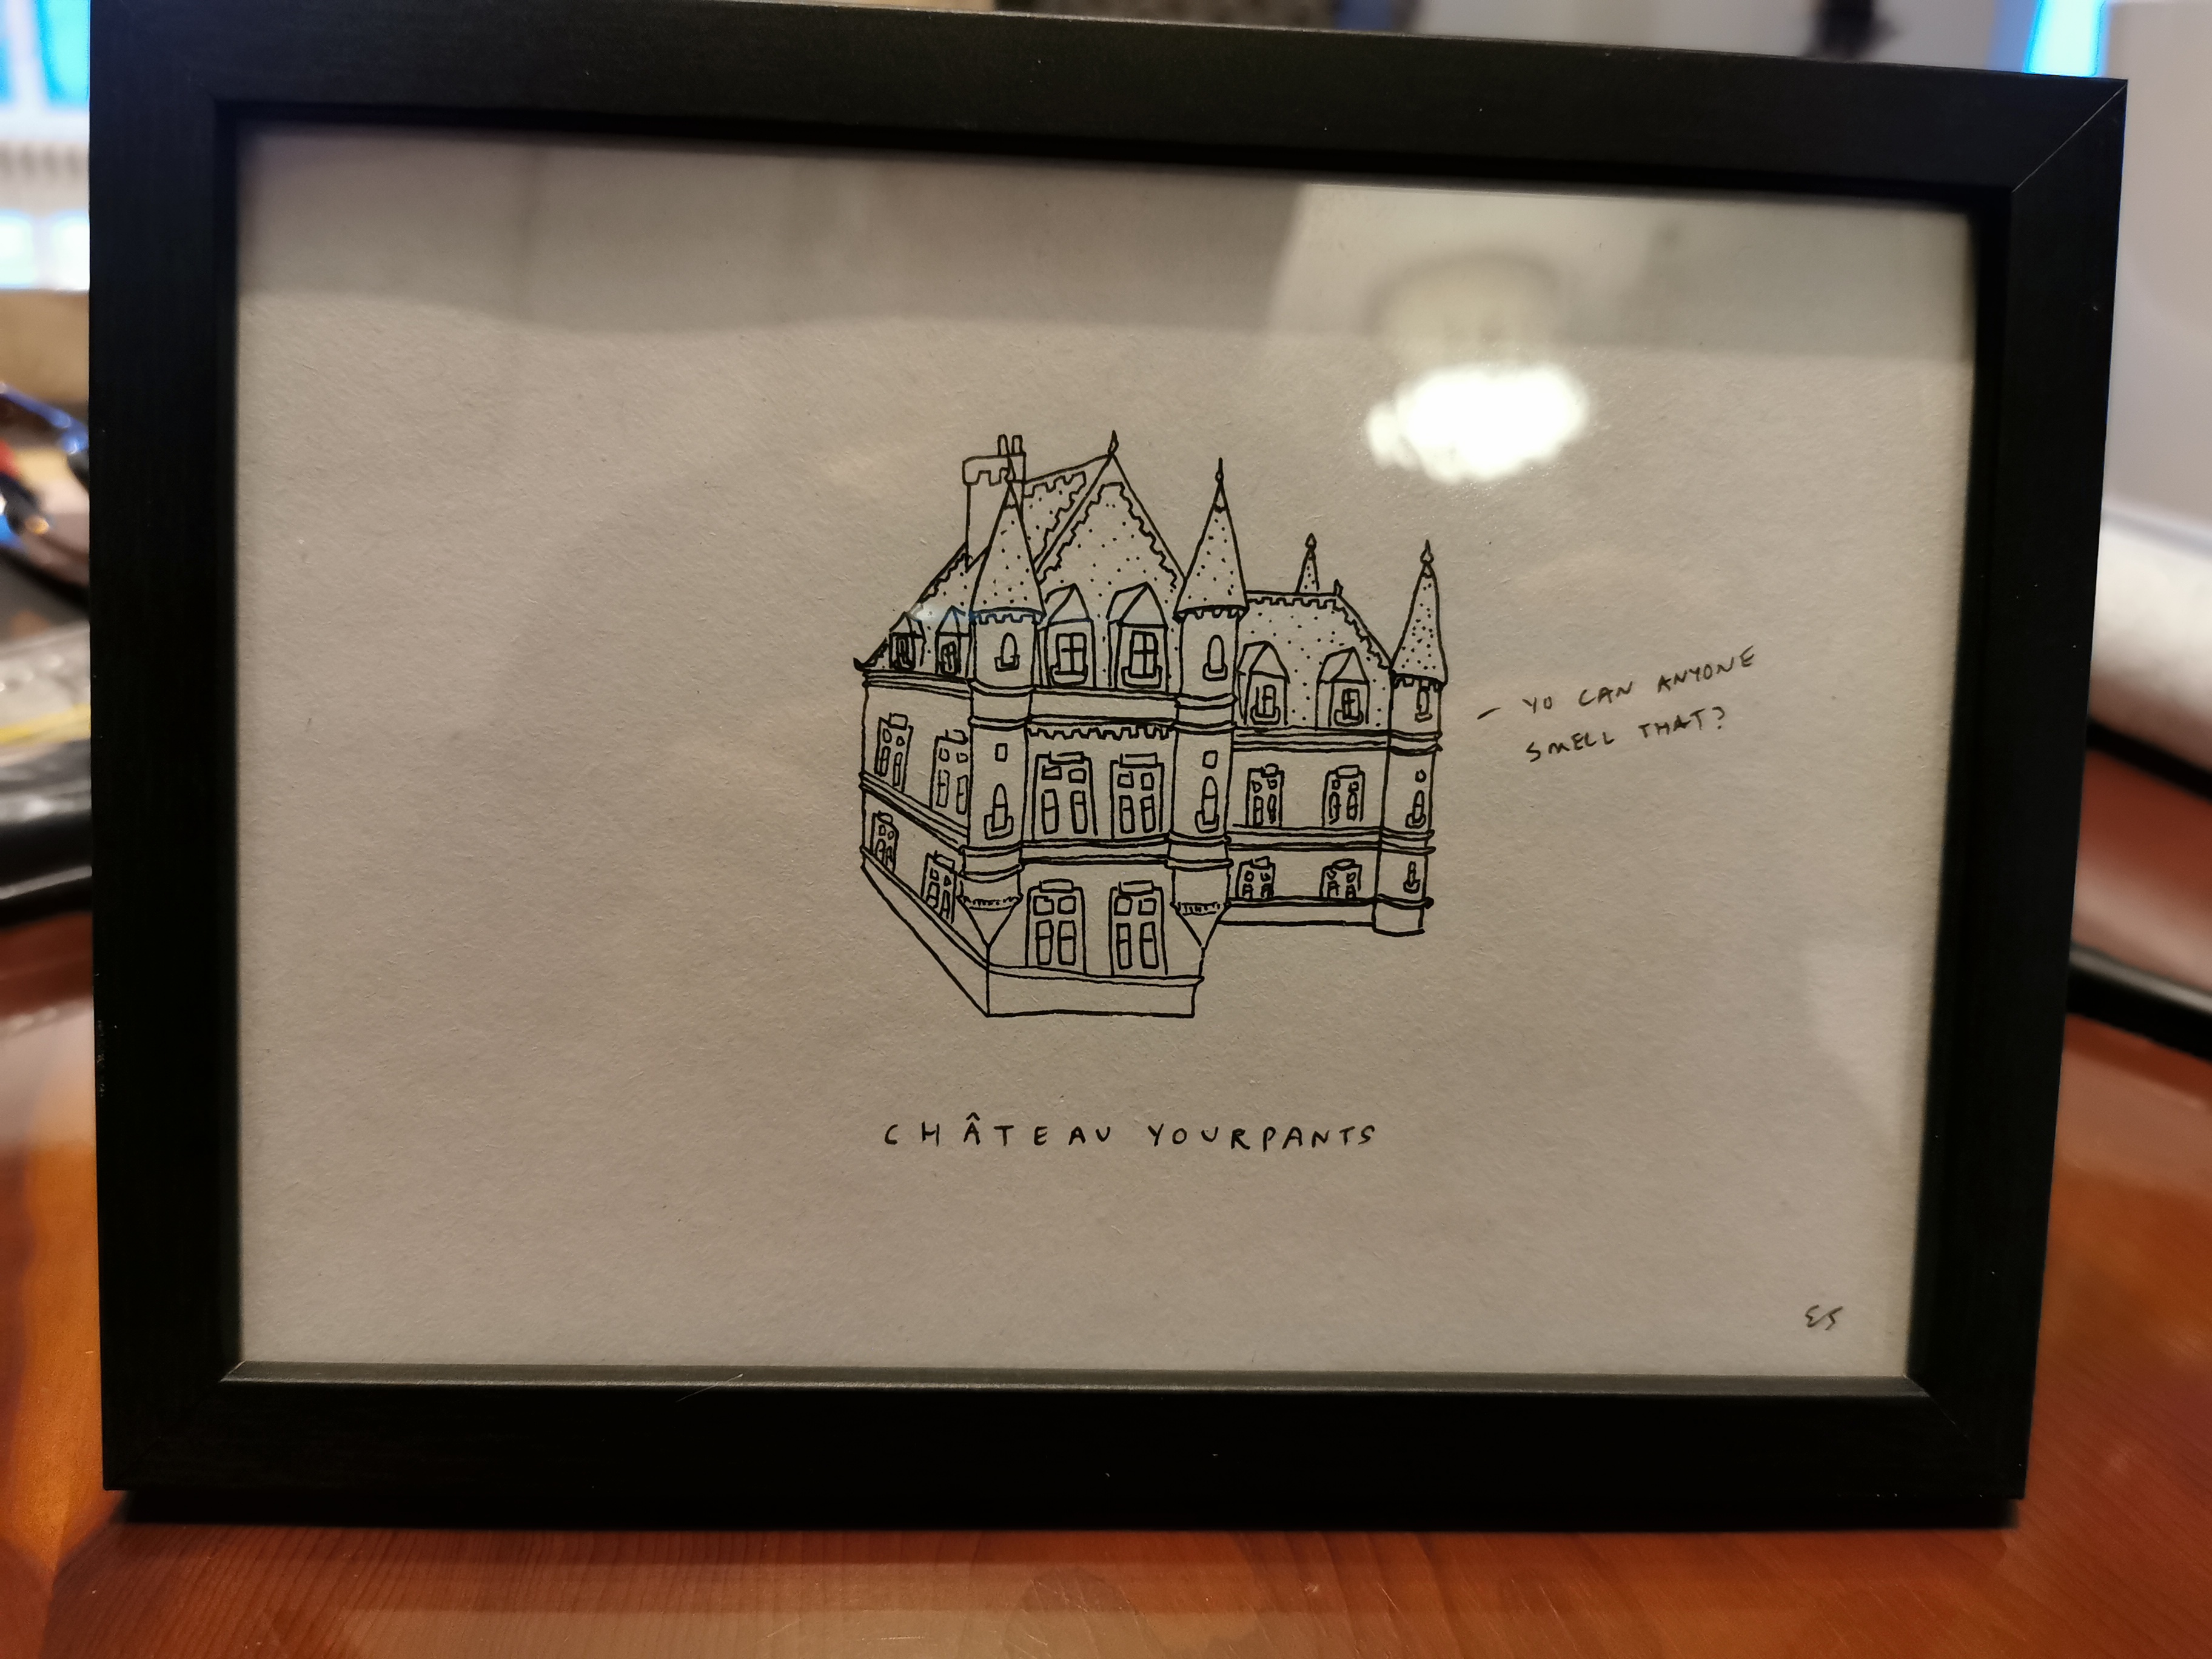 YO CAN ANYONE
SMELL THAT?
CHÂTEAU YOURPANTS
ES